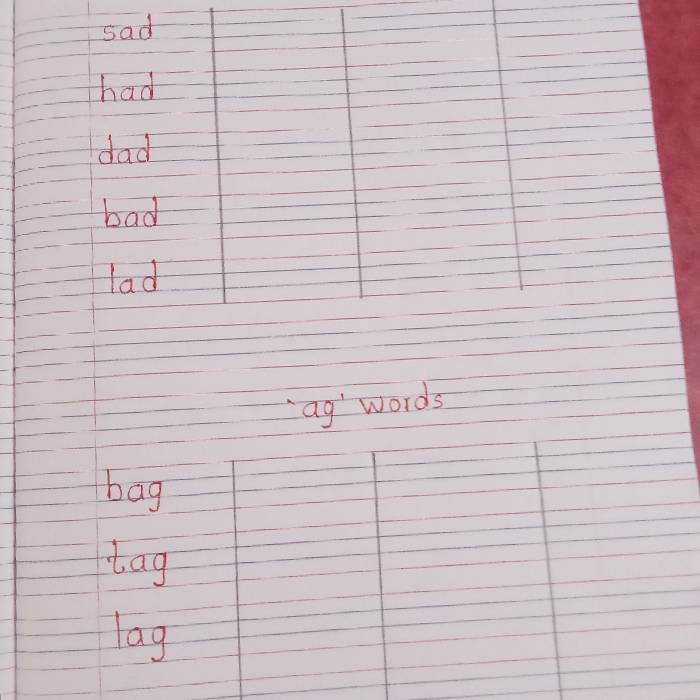 sad
had
dad
bad
lad
'ag' words
bag
tag
lag